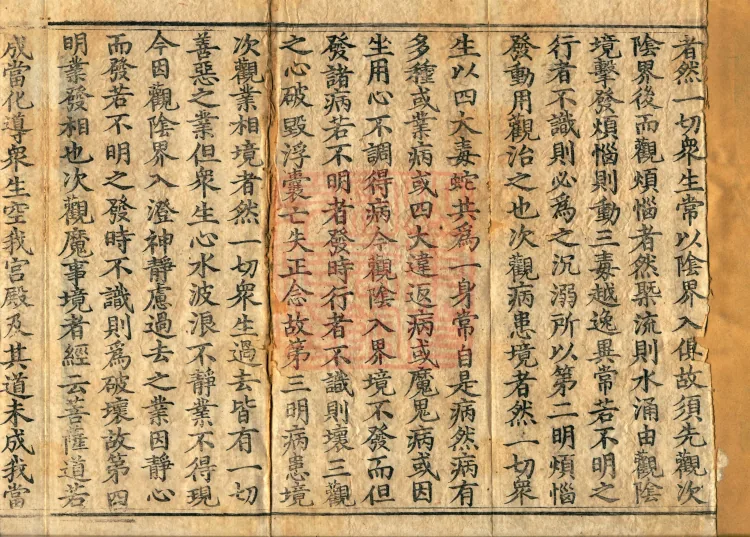 者然一切衆生常以陰界入俱故須先觀次
陰界後而觀煩惱者然槩流則水涌由觀陰
境擊發煩惱則動三毒越逸異常若不明之
行者不識則必爲之沉溺所以第二明煩惱
發動用觀治之也次觀病患境者然一切衆
生以四大毒蛇共爲一身常自是病然病有
多種或業病或四大違返病或魔鬼病或因
坐用心不調得病今觀陰入界境不發而但
發諸病若不明者發時行者不識則壞三觀
之心破毀浮囊亡失正念故第三明病患境
次觀業相境者然一切衆生過去皆有一切
善惡之業但衆生心水波浪不靜業不得現
今因觀陰界入澄神靜慮過去之業因靜心
而發若不明之發時不識則爲破壞故第四
明業發相也次觀魔事境者經云菩薩道若
成當化導衆生空我宮殿及其道未成我當